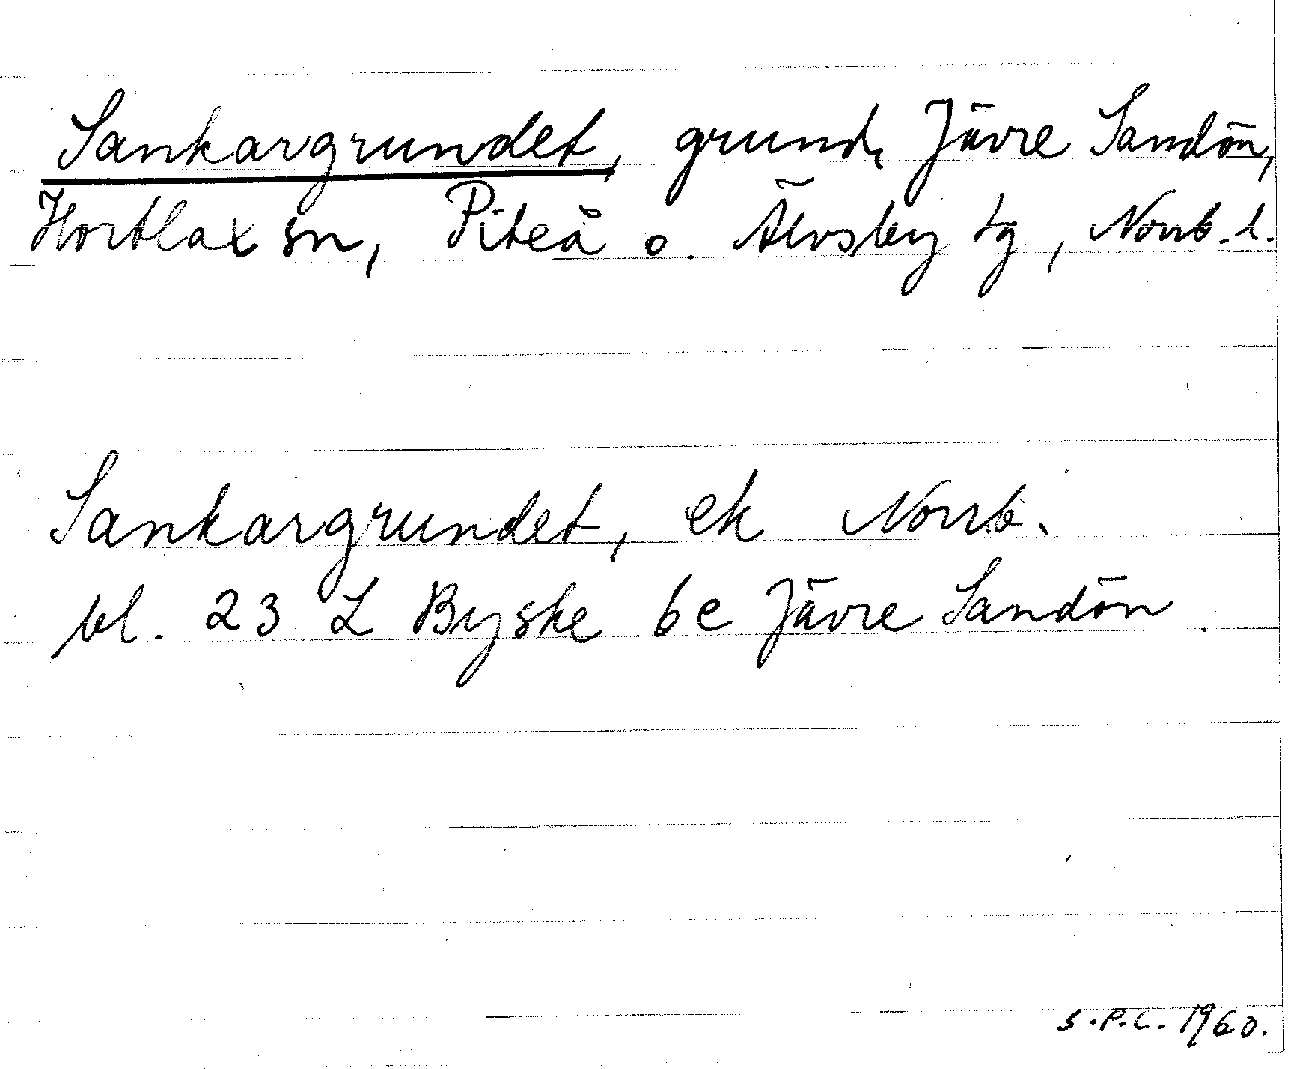 Sankargrundet, grund, Jävre Sandön,
Hortlax sn, Piteå o. Älvsby tg, Norrb. l.
Sankargrundet, ek Norrb.
bl. 23 L Byske 6c Jävre Sandön.
S.P.C. 1960.